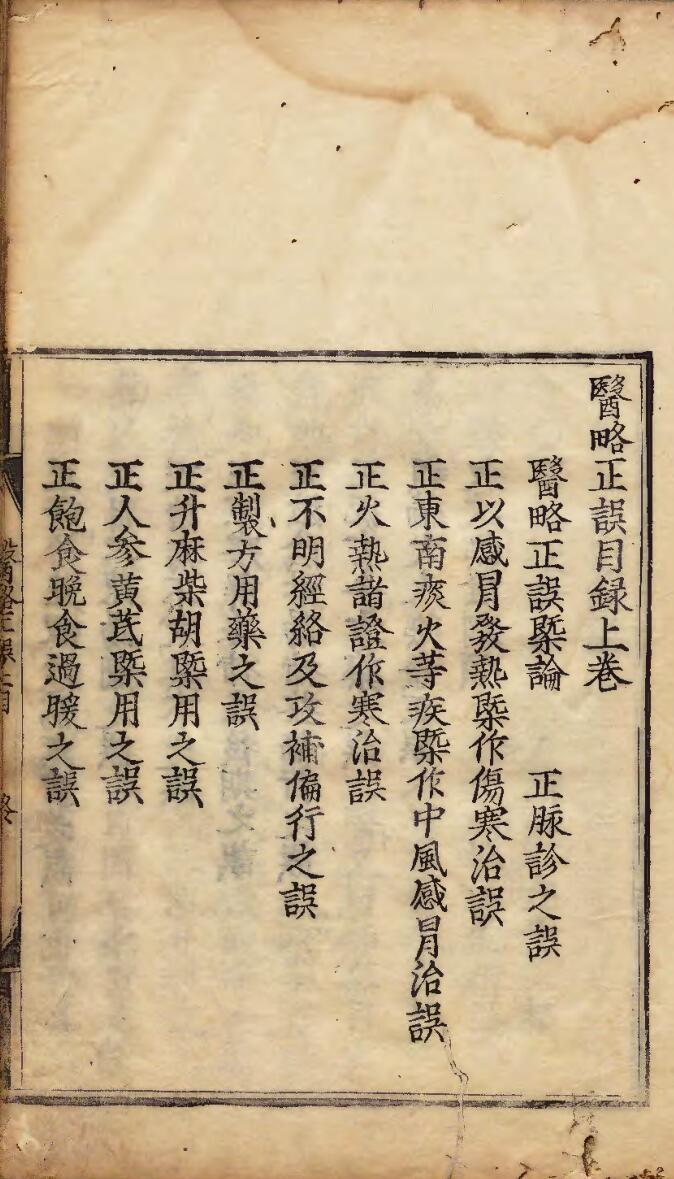 醫略正誤目録上卷
醫略正誤槩論　正脉診之誤
正以感冒發熱槩作傷寒治誤
正東南痰火等疾槩作中風感冒治誤
正火熱諸證作寒治誤
正不明經絡及攻補偏行之誤
正製方用藥之誤
正升麻柴胡槩用之誤
正人參黃芪槩用之誤
正飽食晚食過暖之誤